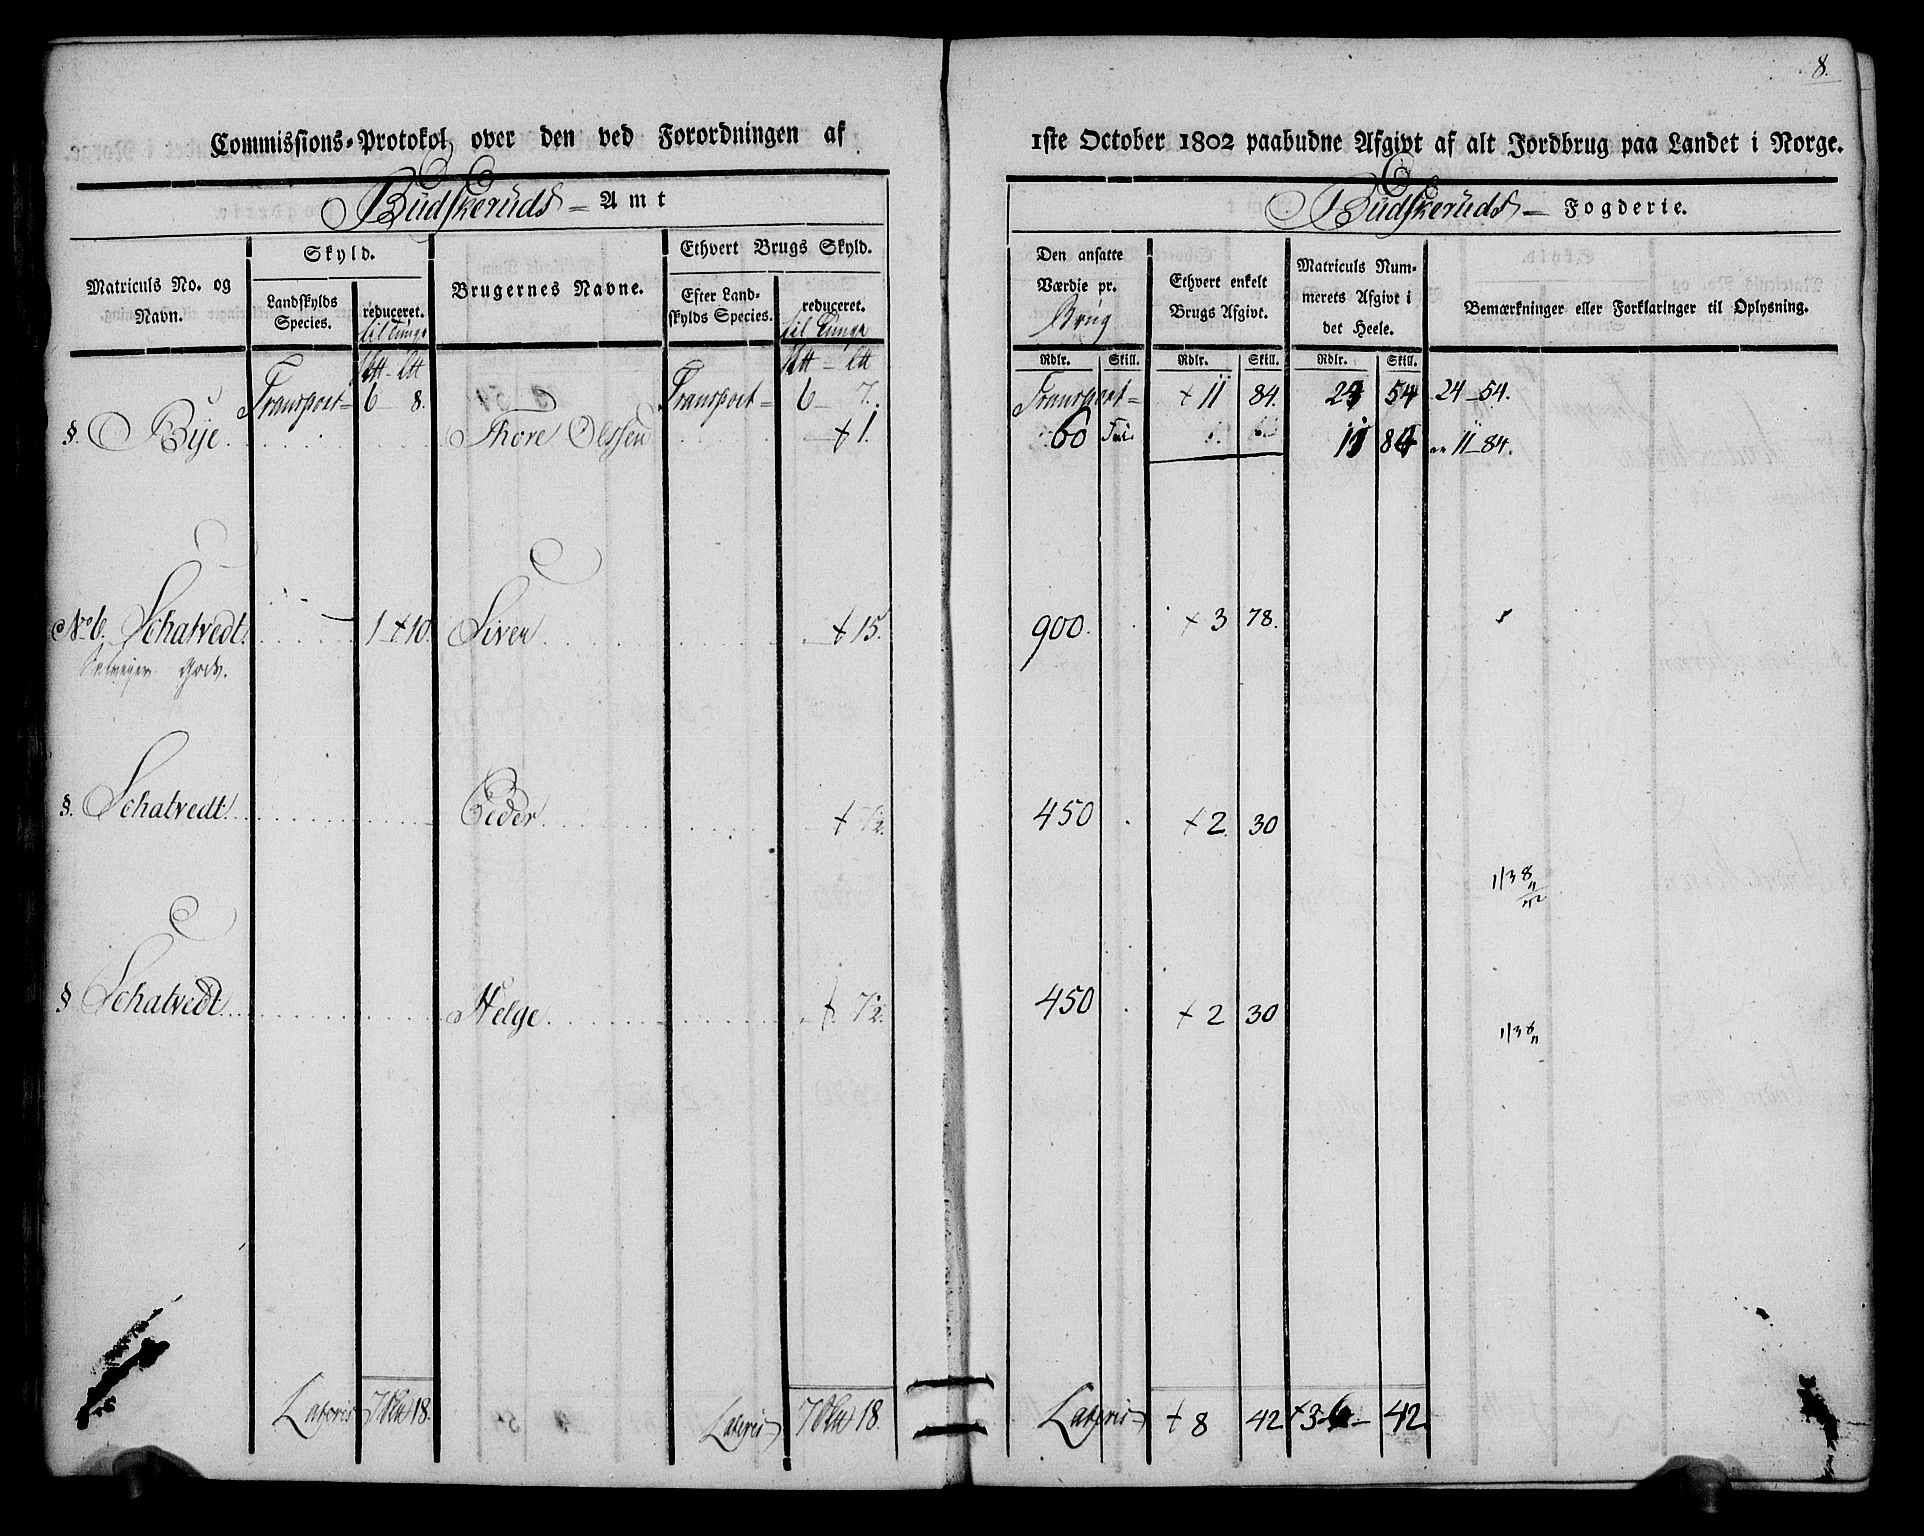 8.
Commissions-Protokol, over den ved Forordningen af 1ste October 1802 paabudne Afgivt af alt Jordbrug paa Landet i Norge.
Budskeruds Amt
Budskeruds Fogderie.
Matriculs No. og Navn.
Skyld.
Landskylds Species.
reduceret.
til Tunge
Brugernes Navne.
Ethvert Brugs Skyld.
Efter Landskylds Species.
reduceret.
til Tunge
Den ansatte Værdie pr. Brug
Ethvert enkelt Brugs Afgivt.
Matriculs Nummerets Afgivt i det Heele.
Bemærkninger eller Forklaringer til Oplysning.
Rdlr. Skill. Rdlr. Skill. Rdlr. Skill.
Transport 6 8. Transport 6 7. Transport + 11 84. 54 24_54.
§. Bye Thore Olssen + 1. 60 Fri. 11 84 11_84.
No 6. Schatvedt 1 + 10. Siver + 15. 900. + 3 78.
Selveyer Gods.
§. Schatvedt Peder + 7½. 450 + 2 30
1/3 8
§ Schatvedt Helge + 7½. 450 + 2 30
1/3 6
Lateris 7 18. Lateris 7 18. Lateris + 8 42 +36 42